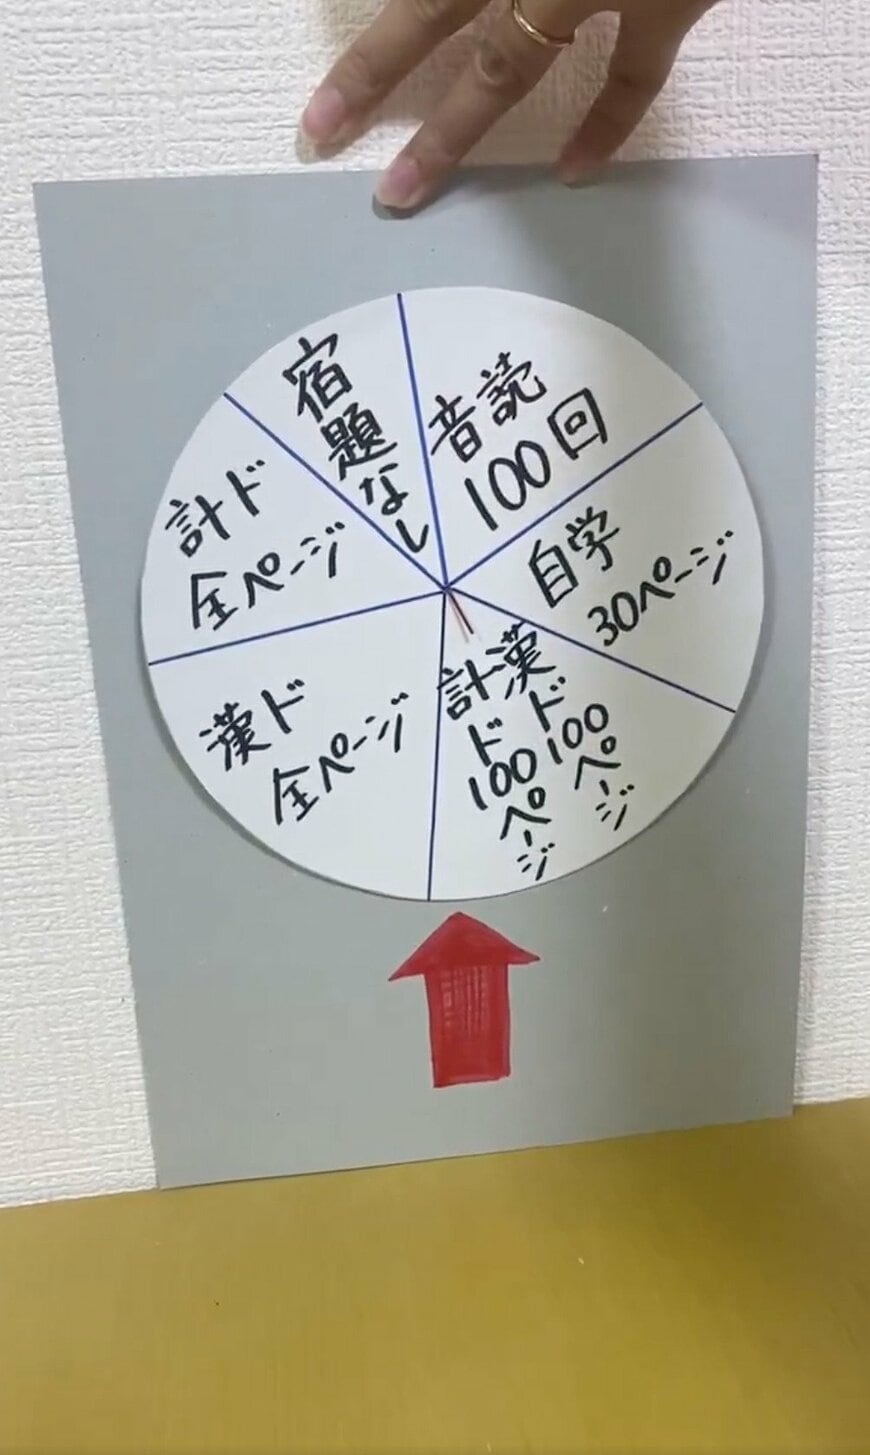 宿題なし
音読
100回
自学
30ページ
漢ド100ページ
計ド100ページ
漢ド
全ページ
計ド
全ページ